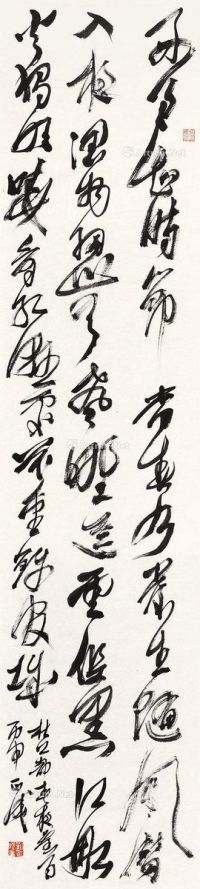 好雨知時節當春乃發生隨風潛
入夜潤物細無聲野徑雲俱黑江船
火獨明曉看紅濕處花重錦官城
杜工部春夜喜雨
丙申正成